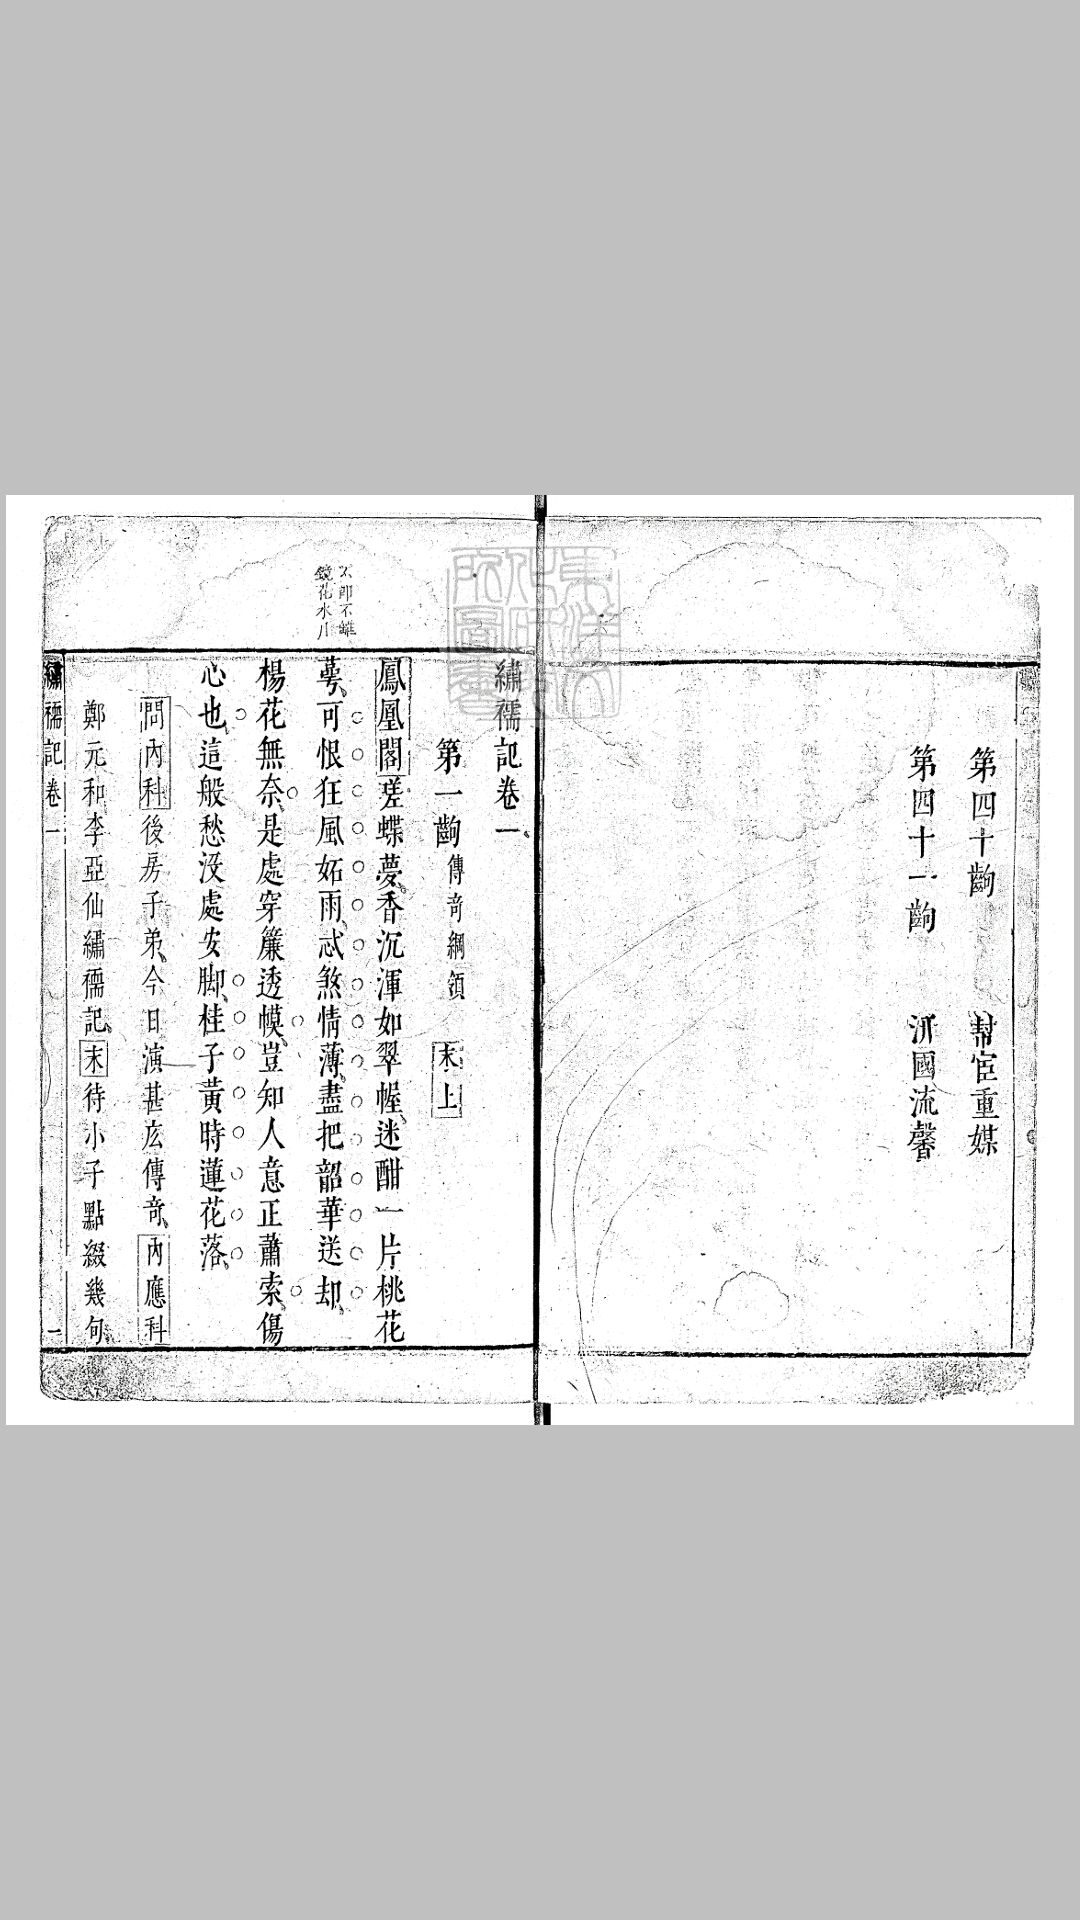 第四十齣 幇宦重媒
第四十一齣 汧國流馨
繡襦記卷一
第一齣 傳奇綱領 末上
鳳凰閣 蝶夢香沉渾如翠幄迷酣一片桃花
萼可恨狂風妬雨忒煞情薄盡把韶華送却
楊花無奈是處穿簾透幙豈知人意正蕭索傷
心也這般愁沒處安脚桂子黃時蓮花落
問內科後房子弟今日演甚庅傳奇內應科
鄭元和李亞仙繡襦記末待小子點綴幾句
不即不離
鏡花水月
繡襦記卷一
一